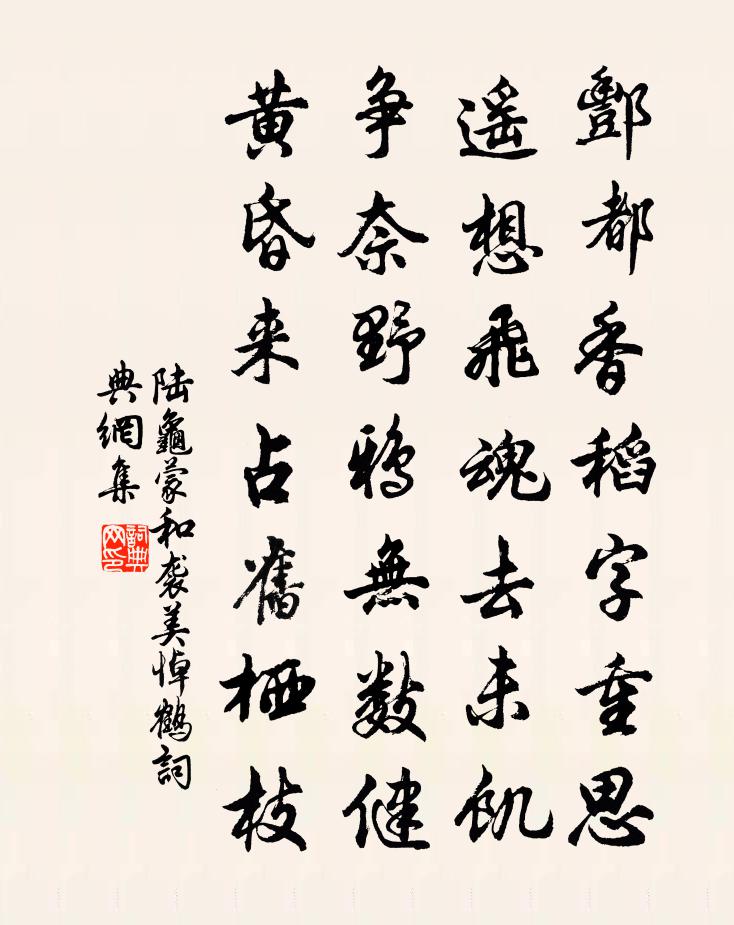 酆都香稻字重思
遥想飛魂去未飢
争奈野鴉無數健
黄昏来占舊栖枝
陸龜蒙和袭美悼鶴詞
典網集
詞典
网印